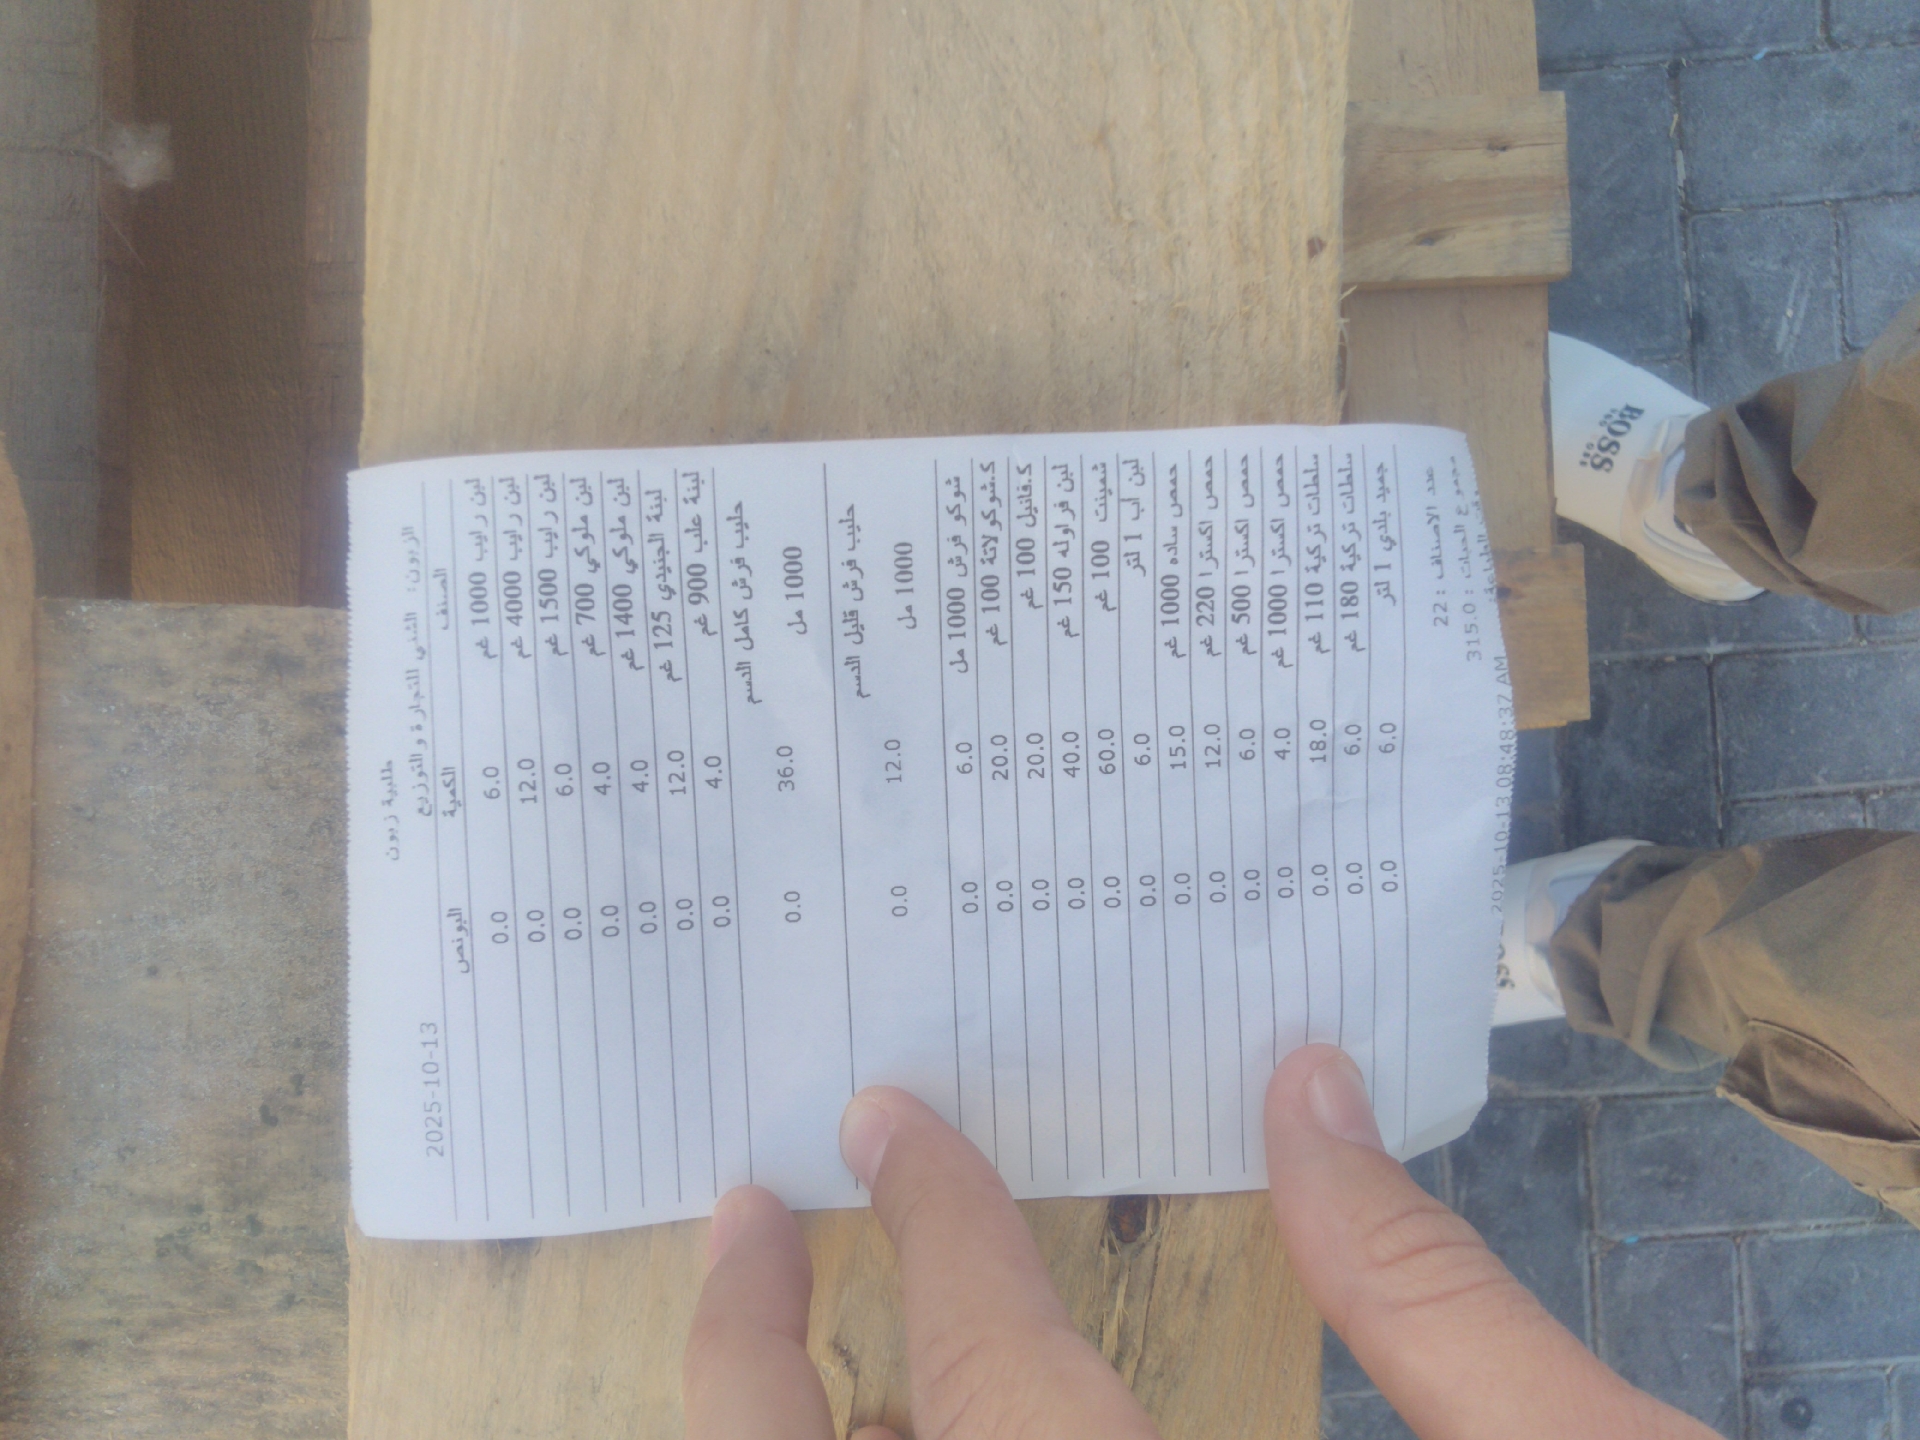 طلبية زبون
الزبون: الشني للتجارة والتوزيع 2025-10-13
الصنف الكمية البونص
لبن رايب 1000 غم 6.0 0.0
لبن رايب 4000 غم 12.0 0.0
لبن رايب 1500 غم 6.0 0.0
لبن ملوكي 700 غم 4.0 0.0
لبن ملوكي 1400 غم 4.0 0.0
لبنة الجنيدي 125 غم 12.0 0.0
لبنة علب 900 غم 4.0 0.0
حليب فرش كامل الدسم
1000 مل 36.0 0.0
حليب فرش قليل الدسم
1000 مل 12.0 0.0
شوكو فرش 1000 مل 6.0 0.0
ك.شوكولاتة 100 غم 20.0 0.0
ك.فانيل 100 غم 20.0 0.0
لبن فراوله 150 غم 40.0 0.0
شمينت 100 غم 60.0 0.0
لبن اب 1 لتر 6.0 0.0
حمص ساده 1000 غم 15.0 0.0
حمص اكسترا 220 غم 12.0 0.0
حمص اكسترا 500 غم 6.0 0.0
حمص اكسترا 1000 غم 4.0 0.0
سلطات تركية 110 غم 18.0 0.0
سلطات تركية 180 غم 6.0 0.0
جميد بلدي 1 لتر 6.0 0.0
عدد الاصناف : 22
مجموع الحبات : 315.0
2025-10-13 08:48:37 AM
BOSS